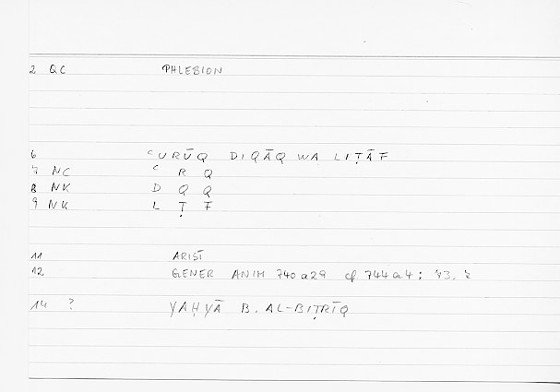 2 QC PHLEBION
6 ʿURŪQ DIQĀQ WA LIṬĀF
7 NC ʿ R Q
8 NK D Q Q
9 NK L Ṭ F
11 ARIST
12 GENER ANIM 740 a 29 cf. 744 a 4;
14 ? YAḤYĀ B. AL-BIṬRĪQ